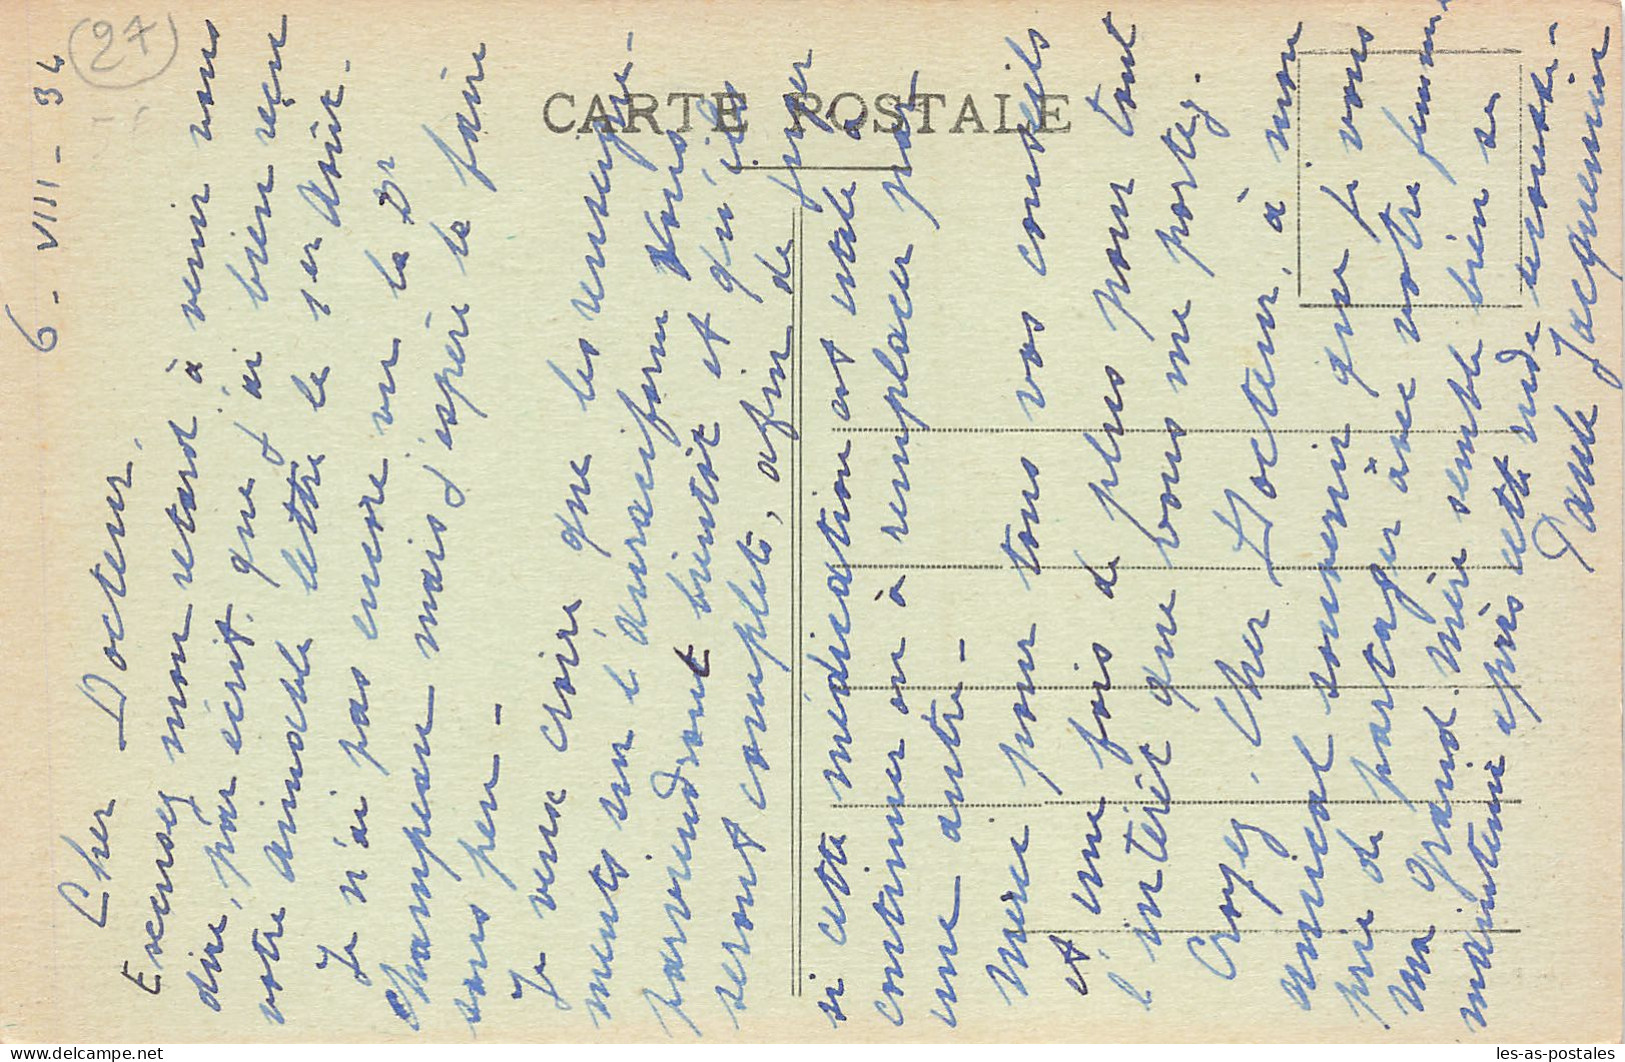 27
CARTE POSTALE
6 - VIII - 34
Cher Docteur,
Excusez mon retard à venir vous
dire, par écrit, que j'ai bien reçu
votre aimable lettre le 1er Août.
Je n'ai pas encore vu le Dr
Champeau mais j'espère le faire
sous peu -
Je veux croire, que les renseigne-
ments sur l' vous
parviendront bientôt et qu'ils
seront complets, afin de juger
si cette médication est utile à
continuer ou à remplacer par
une autre -
Merci pour tous vos conseils
et une fois de plus pour tout
l'intérêt que vous me portez.
Croyez, Cher Docteur, à mon
amical souvenir que je vous
prie de partager avec votre femme
Ma grand-mère semble bien se
maintenir après cette rude secousse -
Paule Jacquemin
les-as-postales